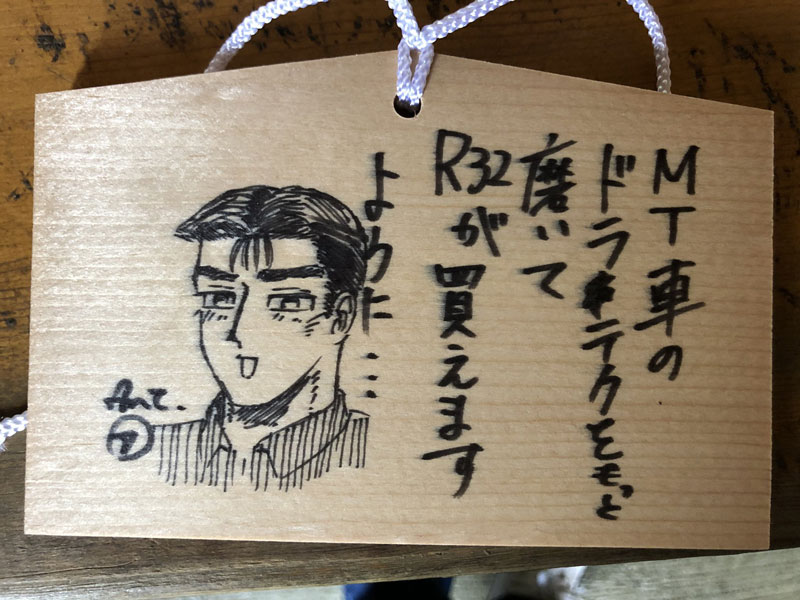 MT車の
ドラテクをもっと
磨いて
R32が買えます
ように…